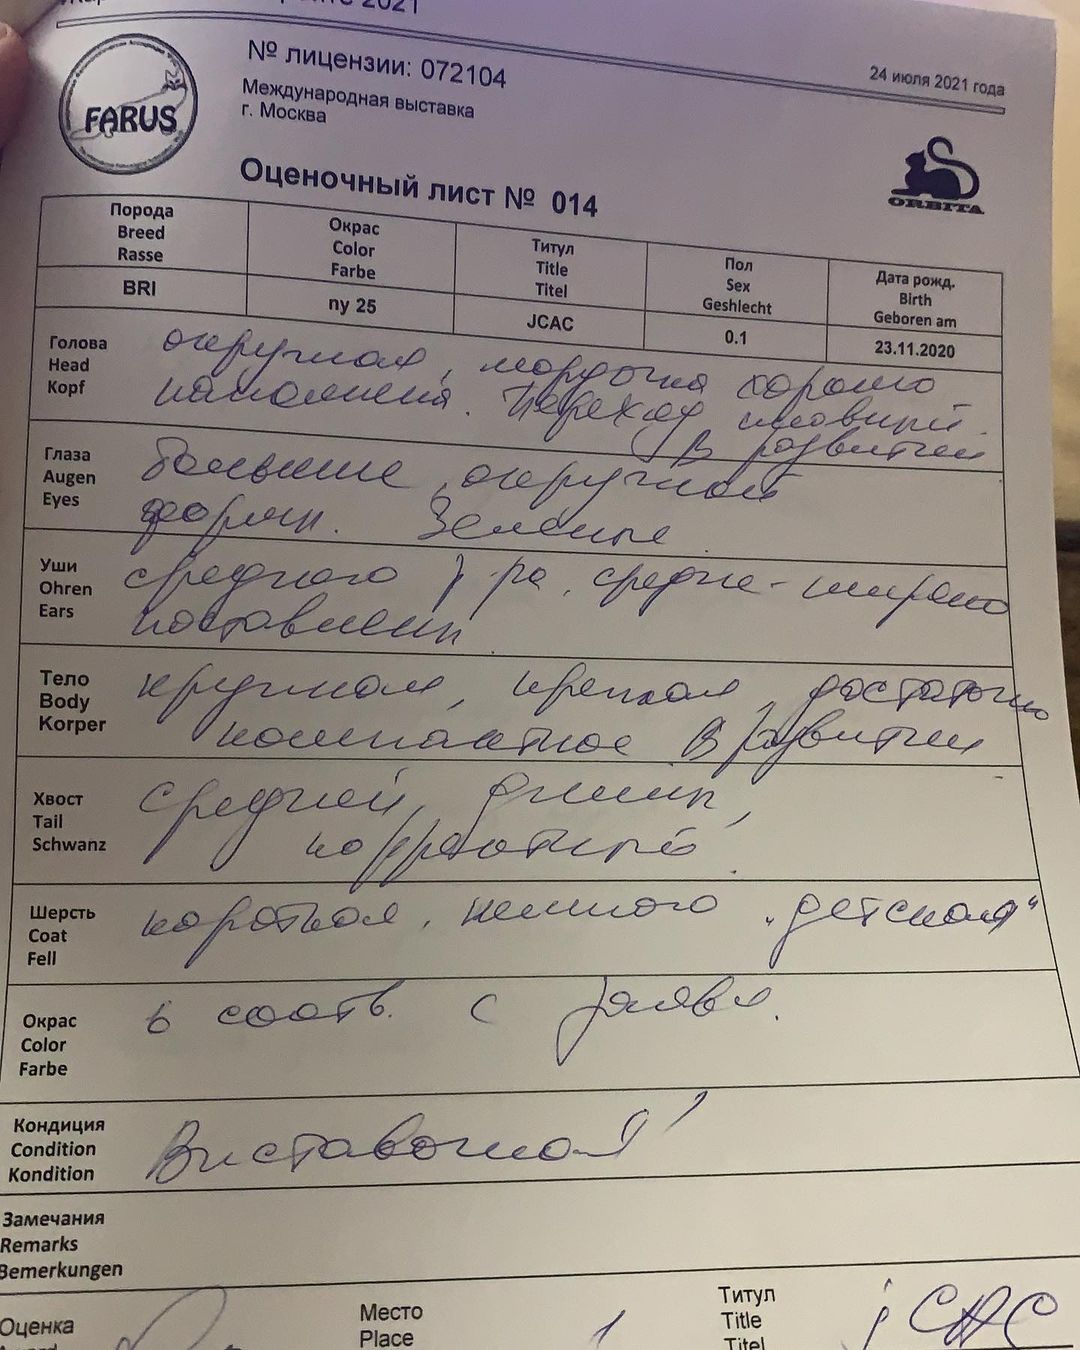 2021
FARUS
№ лицензии: 072104
Международная выставка
г. Москва
24 июля 2021 года
ORBITA
Оценочный лист № 014
Порода
Breed
Rasse
Окрас
Color
Farbe
Титул
Title
Titel
Пол
Sex
Geshlecht
Дата рожд.
Birth
Geboren am
BRI
ny 25
JCAC
0.1
23.11.2020
Голова
Head
Kopf
округлая, мордочка хорошо
наполнена. Переход
В развитии
Глаза
Augen
Eyes
большие, округлой
формы. Зеленые.
Уши
Ohren
Ears
среднего р-ра, средне-широко
поставлены.
Тело
Body
Korper
крупная, крепкая, достаточно
компактное В развитии
Хвост
Tail
Schwanz
средней длины,
корректный.
Шерсть
Coat
Fell
короткая, немного „детская“
Окрас
Color
Farbe
в соотв. с заявл.
Кондиция
Condition
Kondition
Выставочная!
Замечания
Remarks
Bemerkungen
Оценка
Место
Place
1
Титул
Title
Titel
jCAC